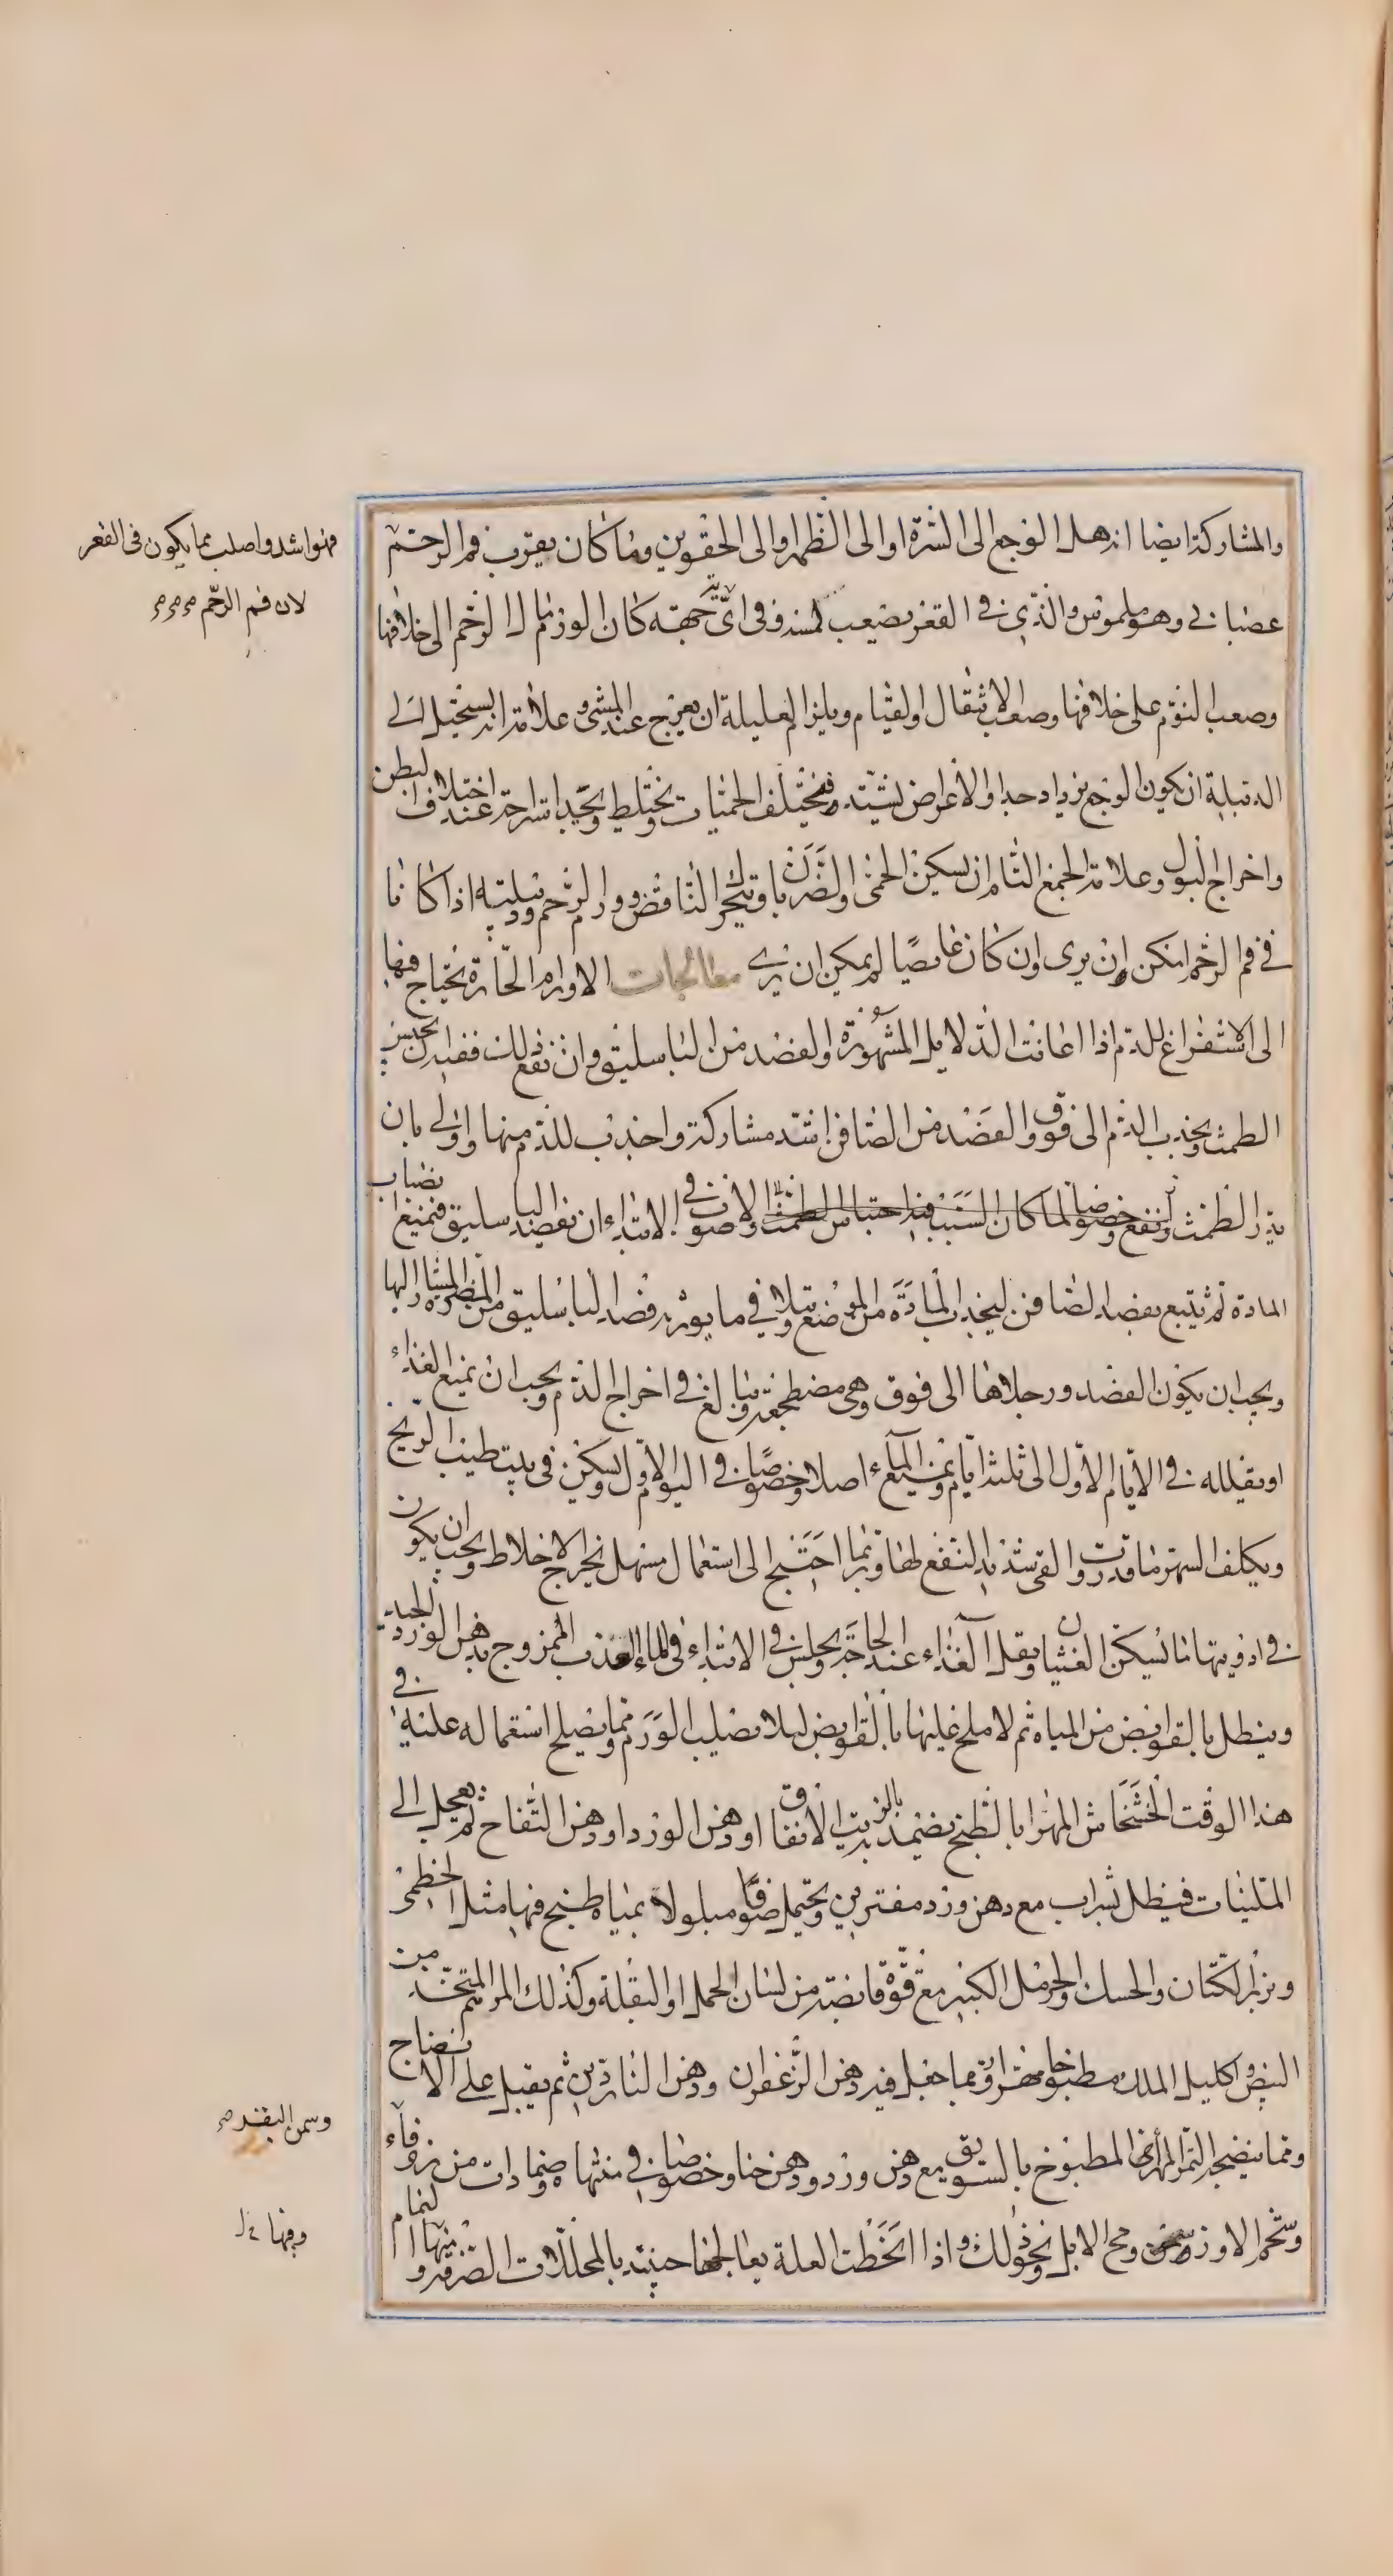 والمشاركة ايضا انه هل الوجع الى السرة او الى الظهر او الى الحقوين وما كان يقرب فم الرحم
فهو اشد واصلب مما يكون فى القعر
لان فم الرحم
عصبانى وهو ملموس والذى فى القعر يصعب لمسه وفى اى جهة كان الورم مال الرحم الى خلافها
وصعب النوم على خلافها وصعب الانتقال والقيام ويلزم العليلة ان يعرج عند المشى وعلامة انه يستحيل الى
الدبيلة ان يكون الوجع يزداد جدا والاعراض تشتد وتختلف الحميات وتختلط وتجد استراحة عند اختلاف البطن
واخراج البول وعلامة الجمع التام ان تسكن الحمى والضربان ويتحرك النافض وورم الرحم ودبيلته اذا كانا
فى فم الرحم امكن ان يرى وان كان غايصا لم يمكن ان يرى معالجات الاورام الحارة يحتاج فيها
الى الاستفراغ للدم اذا اعانت الدلايل المشهورة والفصد من الباسليق وان نفع ذلك فقد يحبس
الطمث ويجذب الدم الى فوق والفصد من الصافن اشد مشاركة واجذب للدم منها واولى بان
يدر الطمث وينفع وخصوصا لما كان السبب فيه احتباس الطمث والاصوب فى الابتداء ان يفصد الباسليق فيمنع انصباب
المادة ثم يتبع بفصد الصافن ليجذب المادة من الموضع ويتلافى ما يورثه فصد الباسليق من المضرة المشار اليها
ويجب ان يكون الفصد ورجلاها الى فوق وهى مضطجعة ويبالغ فى اخراج الدم ويجب ان يمنع الغذاء
او يقلله فى الايام الاول الى ثلثة ايام ويمنع الماء اصلا وخصوصا فى اليوم الاول ويسكن فى بيت طيب الريح
ويكلف السهر ما قدرت والقى شديد النفع لها وربما احتيج الى استعمال مسهل يخرج الاخلاط ويجب ان يكون
فى ادويتها ما يسكن الغثيان ويقلل الغذاء عند الحاجة ويجلس فى الابتداء فى الماء العذب الممزوج بدهن الورد الجيد
وينطل بالقوابض من المياه ثم لا ملح عليها بالقوابض ليلا يصلب الورم ومما يصلح استعماله عليه فى
هذا الوقت الخشخاش المهرا بالطبخ يضمد بالزيت الانفاق او دهن الورد او دهن التفاح ثم يعجل الى
الملينات فينطل بشراب مع دهن ورد مفترين ويحتمل صوفا مبلولا بمياه طبخ فيها مثل الخطمى
وبزر الكتان والحسك والحرمل الكبير مع قوة قابضة من لسان الحمل او البقلة وكذلك المرهم المتخذ من
البيض واكليل الملك مطبوخا مهرا وربما جعل فيه دهن الزعفران ودهن الناردين ثم يقبل على الانضاج
ومما ينضجه التمر المهرى المطبوخ بالسويق مع دهن ورد ودهن حنا وخصوصا فى منتهاه وضمادات من زوفاء
وسمن البقر
وشحم الاوز ومخ الابل ونحو ذلك واذا انحطت العلة يعالجها حينئذ بالمحللات الصرفة ومنها النمام
وفيها